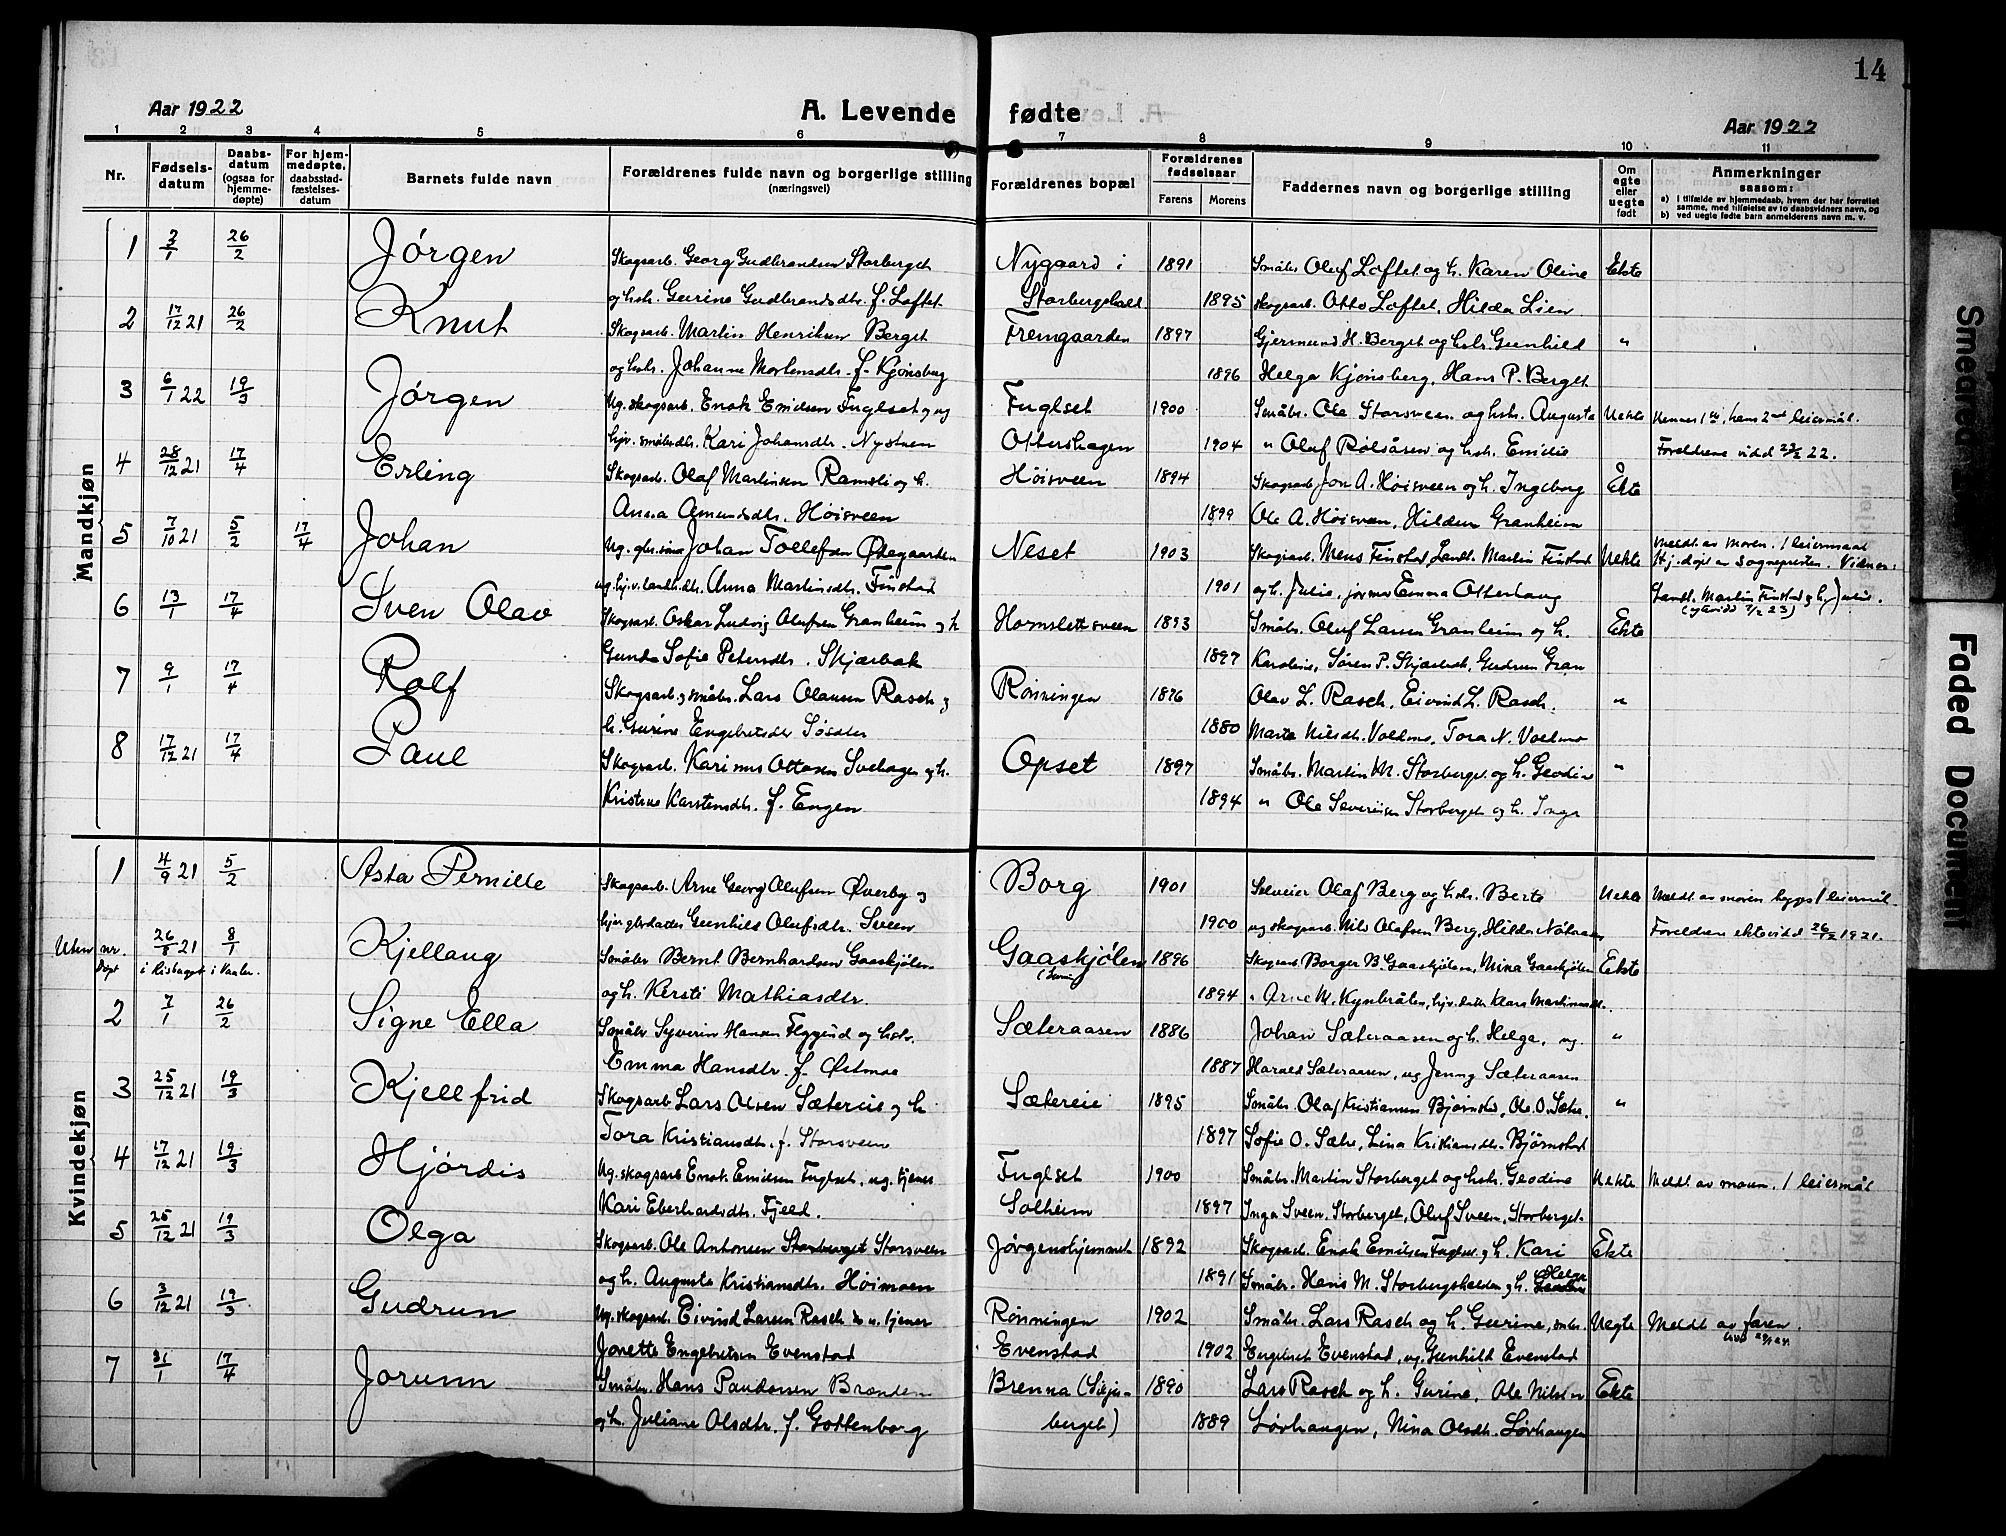 14
Aar 1922
A. Levende fødte
Aar 1922
1 2 3 4 5 6 7 8 9 10 11
Nr.
Fødsels-datum
Daabs-datum (ogsaa for hjemme-døpte)
For hjem-medøpte, daabsstad-fæstelses-datum
Barnets fulde navn
Forældrenes fulde navn og borgerlige stilling (næringsvei)
Forældrenes bopæl
Forældrenes fødselsaar
Farens Morens
Faddernes navn og borgerlige stilling
Om egte eller uegte født
Anmerkninger saasom:
a) I tilfælde av hjemmedaab, hvem der har forrettet samme, med tilføielse av to daabsvidners navn, og
b) ved uegte fødte barn anmelderens navn m. v.
Mandkjøn
1 2/1 26/2 Jörgen Skogsarb. Georg Gudbrandsen Storberget Nygaard i 1891 Småbr. Oluf Loftet og h. Karen Oline Ekte
og hstr. Gurine Gudbrandsdtr. f. Loftet Storbergshald 1895 skogsarb. Otto Loftet, Hilda Lien
2 17/12 21 26/2 Knut Skogsarb. Martin Henriksen Berget Fremgaarden 1897 Gjermund H. Berget og hstr. Gunhild "
og hstr. Johanne Mortensdtr. f. Kjönsberg 1896 Helga Kjönsberg, Hans P. Berget
3 6/1 22 19/3 Jörgen Ug. skogsarb. Enok Emilsen Fuglset og ug Fuglset 1900 Småbr. Ole Storsveen og hstr. Augusta Uekte Hennes 1ste, hans 2net leiermål.
hjv. småbrdtr. Kari Johansdtr. Nystuen Ottershagen 1904 " Oluf Rölsåsen og hstr. Emilie Foreldrene vidd 22.
4 28/12 21 17/4 Erling Skogsarb. Olaf Martinsen Ramsli og h. Höisveen 1894 Skogsarb Jon A. Höisveen og h. Ingeborg Ekte
Anna Amundsdtr. Höisveen 1899 Ole A. Höisveen, Hildur Granheim
5 7/10 21 5/2 17/4 Johan Ug. Johan Tollefsen Ødegaarden Neset 1903 Skogsarb. Mens Finstad Landb. Martin Finstad Uekte Meldt av Moren. 1 leiermaal
ug. hjv. Anna Martinsdtr. Finstad 1901 og h. Julie, Emma Otterhaug Hj. døpt av Sogneprsten. Vidner:
Landb. Martin Finstad og h. Julie.
(egtevidd 7/2 23)
6 13/1 17/4 Sven Olav Skogsarb. Oskar Ludvig Olufsen Granheim og h Hornslettsveen 1893 Småbr. Oluf Larsen Granheim og h. Ekte
Gunda Sofie Petersdtr. Skjærbak 1897 Karoline, Søren P. Skjærbak, Gudrun Gran
7 9/1 17/4 Rolf Skogsarb og småbr. Lars Olausen Rasch og Rönningen 1876 Olav L. Rasch, Eivind L. Rasch. "
h. Gurine Engebretsdtr 1880 Marta Nilsdtr. Voldmo, Tora N. Voldmo
8 17/12 21 17/4 Paul Skogsarb. Karinus Ottosen Svehagen og h. Opset 1897 Småbr. Martin M. Storberget og h. Geodine "
Kristine Karstensdtr. f. Engen 1894 " Ole Severinsen Storberget og h. Inga
Kvindekjøn
1 4/9 21 5/2 Asta Pernille Skogsarb. Arne Georg Olufsen Øverby og Borg 1901 Selveier Olaf Berg og hstr. Berte Uekte Meldt av moren begges 1 leiermål.
hjv. gbrdatter Gunhild Olufsdtr. Sveen 1900 ug skogsarb. Nils Olafsen Berg, Hilda Foreldrene ektevidd 26/12 1921.
Uten nr. 26/8 21 8/1 Kjellaug Småbr Bernt Bernhardsen Gaaskjölen Gaaskjölen 1896 Skogsarb. Borger B. Gaaskjölen, Nina Gaaskjölen Ekte
Døpt i i Vaaler. og h. Kersti Mathiasdtr. 1894 " Arne M. Kynbråten, hjv. datter Klara
2 7/1 26/2 Signe Ella Småbr Syverin Hansen Flygind og hstr. Sæteraasen 1886 Johan Sæteraasen og h. Helga, ug "
Emma Hansdtr. f. Østmoe 1887 Harald Sæteraasen, ug Jenny Sæteraasen
3 25/12 21 19/3 Kjellfrid Skogsarb Lars Olsen Sætereie og h Sætereie 1895 Småbr. Olaf Kristiansen Björnstad, Ole O. Sætre. "
Tora Kristiansdtr. f. Storsveen 1897 Sofie O. Sætre, Lina Kristiansdtr. Björnstad
4 17/12 21 19/3 Hjördis Ug. skogsarb Enok Emilsen Fuglset, ug. tjener Fuglset 1900 Småbr. Martin Storberget og hstr. Geodine Uekte Meldt av moren. 1 leiermål
Kari Eberhardsdtr. Fjeld. Solheim 1897 Inga Sveen. Storberget, Oluf Sveen, Storberget.
5 25/12 21 19/3 Olga Skogsarb. Ole Antonsen Storberget Storsveen Jörgenshjemmet 1892 Skogsarb. Enok Emilsen Fuglset og h. Kari Ekte
og h. Augusta Kristiansdtr. Höimoen 1891 Småbr. Hans M. Storbergshalden og h. Helga
6 3/12 21 19/3 Gudrun Ug. skogsarb. Eivind Larsen Rasch og u. tjener Rönningen 1902 Småbr. Lars Rasch og h. Gurine, småbr. Uegte Meldt av faren.
Jonette Engebretsen Evenstad Evenstad 1902 Engebret Evenstad, ug. Gunhild Evenstad
7 31/1 17/4 Jorunn Småbr. Hans Paudersen Brenden Brenna (Silju- 1890 Lars Rasch og h. Gurine, Ole Nilsen Ekte
og h. Juliane Olsdtr. f. Gottenborg berget) 1889 Lövhaugen, Nina Olsdtr. Lövhaugen
Smeared
Faded Document